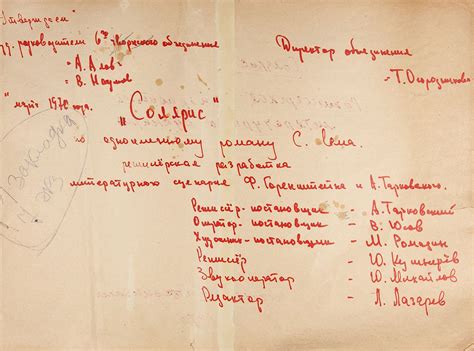 "Утверждаем"
худ. руководители 6го творческого объединения
Директор объединения
- А. Алов -
- В. Наумов
- Т. Огородникова
" март 1970 года.
"Солярис"
по одноименному роману С. Лема.
режиссёрская разработка
литературного сценария Ф. Горенштейна и А. Тарковского.
Режиссёр-постановщик - А. Тарковский
Оператор-постановщик - В. Юсов
Художник-постановщик - М. Ромадин
Режиссёр - Ю. Кушнерёв
Звукооператор - Ю. Михайлов
Редактор - Л. Лазарев
закладка